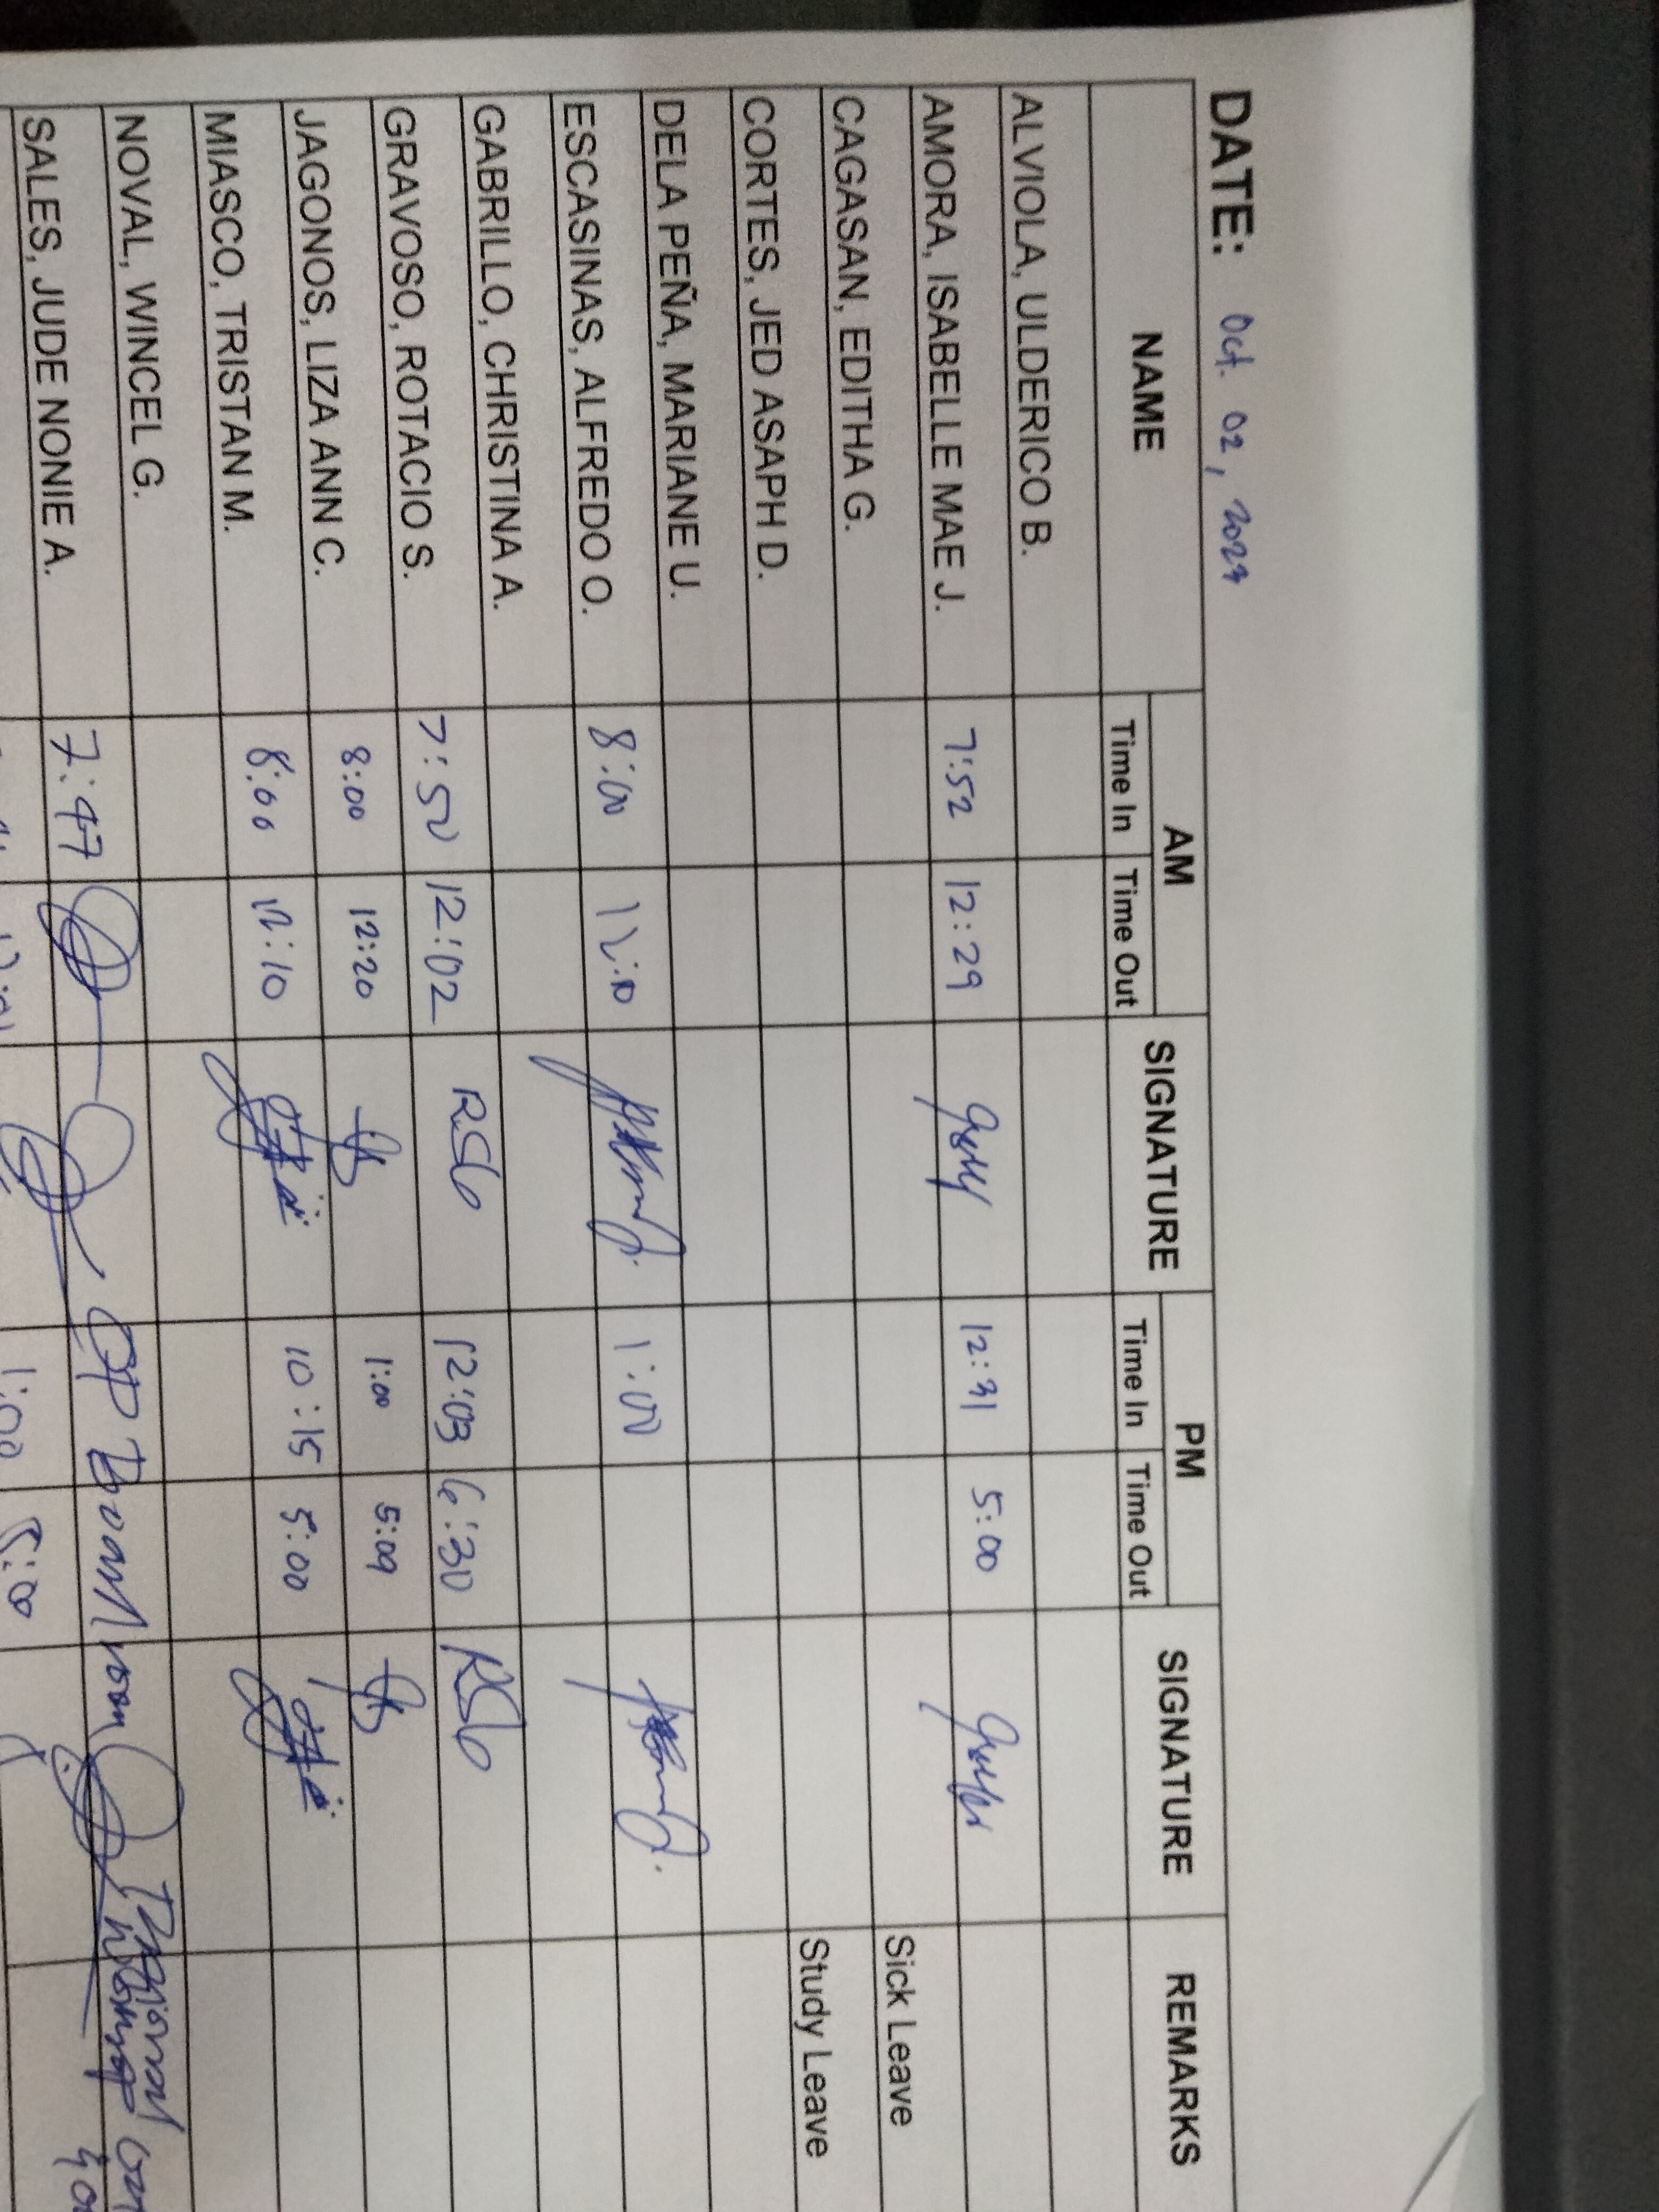 DATE: Oct. 02, 2023
NAME AM SIGNATURE PM SIGNATURE REMARKS
Time In Time Out Time In Time Out
ALVIOLA, ULDERICO B.
AMORA, ISABELLE MAE J. 7:52 12:29 12:31 5:00
CAGASAN, EDITHA G. Sick Leave
CORTES, JED ASAPH D. Study Leave
DELA PEÑA, MARIANE U.
ESCASINAS, ALFREDO O. 8:00 12:10 1:00
GABRILLO, CHRISTINA A.
GRAVOSO, ROTACIO S. 7:50 12:02 RSG 12:03 6:30 RSG
JAGONOS, LIZA ANN C. 8:00 12:20 1:00 5:09
MIASCO, TRISTAN M. 8:00 12:10 10:15 5:00
NOVAL, WINCEL G.
SALES, JUDE NONIE A. 7:47 OP Board room
1:00 5:00